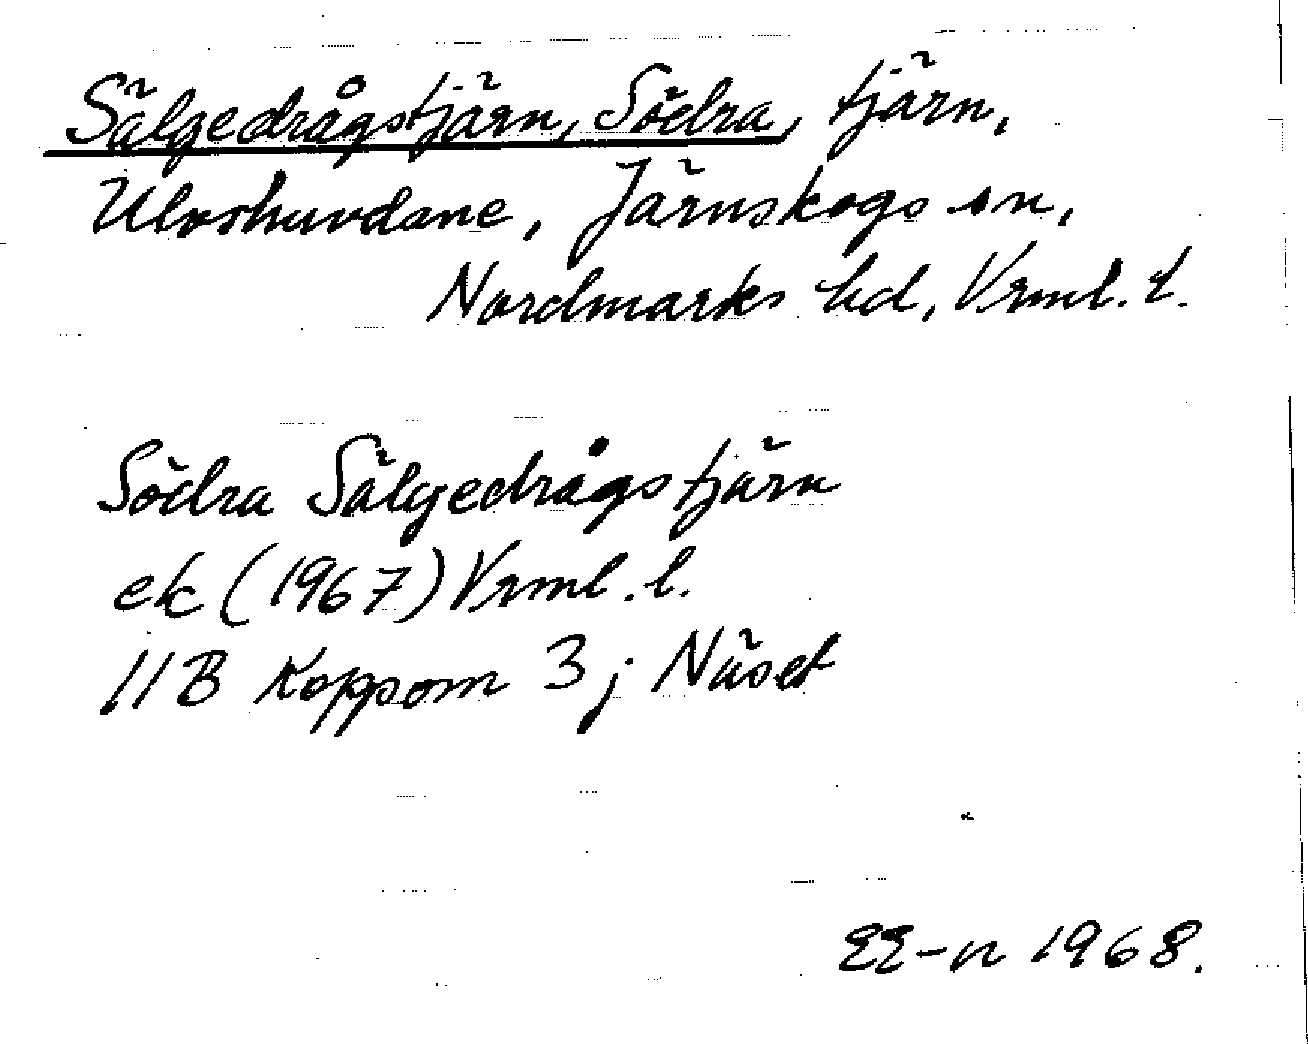 Sälgedrågstjärn, Södra, tjärn,
Ulvshuvdane, Järnskogs sn,
Nordmarks hd, Vrml. l.
Södra Sälgedrågstjärn
ek (1967) Vrml. l.
11B Koppom 3; Näset
EE-n 1968.